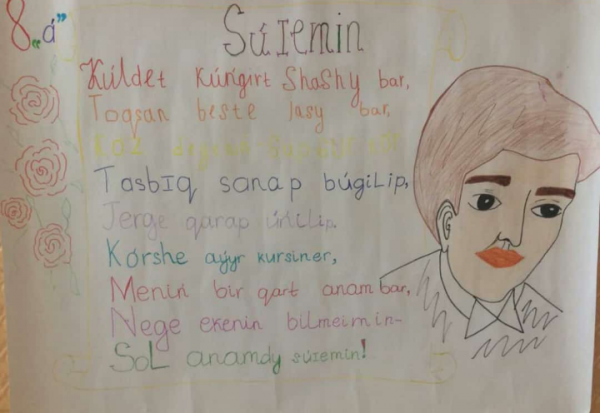 8 „á"
Súıemin
Kúldet kúńgirt ShaShy bar,
Toqsan beste Jasy bar,
TasbIq sanap búgiLip,
Jerge qarap úńilip.
Korshe aýyr kursiner,
Meniń bir qart anam bar,
Nege ekenin bilmeimin-
SoL anamdy súıemin!